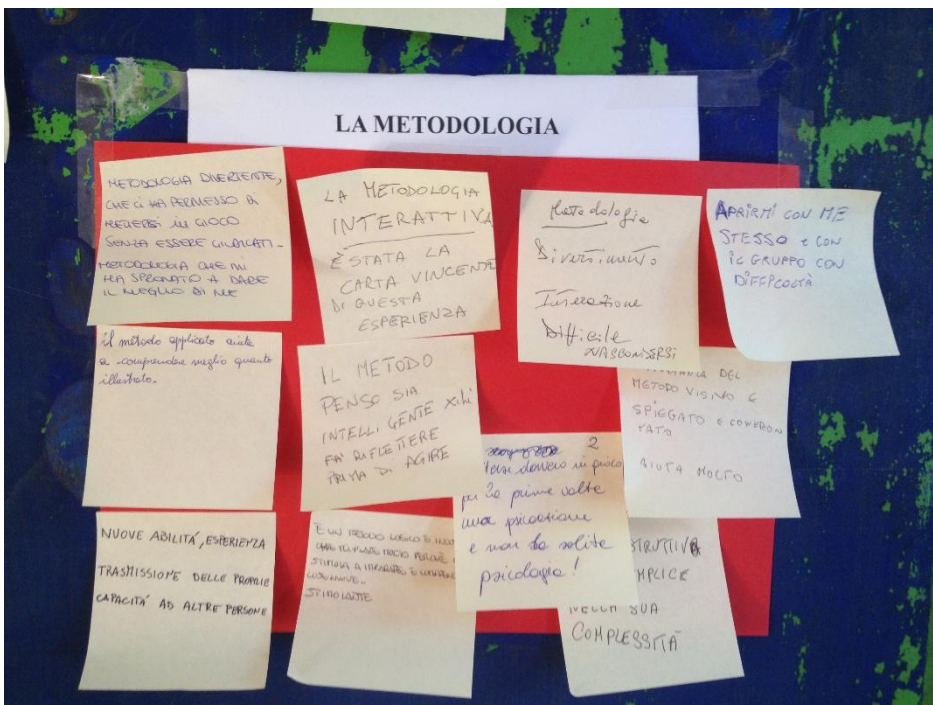 LA METODOLOGIA
METODOLOGIA DIVERTENTE,
CHE CI HA PERMESSO DI
METTERSI IN GIOCO
SENZA ESSERE GIUDICATI-
METODOLOGIA CHE MI
HA SPRONATO A DARE
IL MEGLIO DI ME
LA METODOLOGIA
INTERATTIVA
È STATA LA
CARTA VINCENTE
DI QUESTA
ESPERIENZA
Metodologia
Divertimento
Interazione
Difficile
NASCONDERSI
APRIRMI CON ME
STESSO e CON
IL GRUPPO CON
DIFFICOLTÀ
il metodo applicato aiuta
a comprendere meglio quanto
illustrato.
IL METODO
PENSO SIA
INTELLIGENTE
FA' RIFLETTERE
PRIMA DI AGIRE
DEL
METODO VISIVO E
SPIEGATO E
AIUTA MOLTO
2
davvero in gioco
per la prima volta
una psicoazione
e non la solita
psicologia!
NUOVE ABILITÁ, ESPERIENZA
TRASMISSIONE DELLE PROPRIE
CAPACITÁ AD ALTRE PERSONE
È UN METODO LOGICO E
STIMOLA A
STIMOLANTE
NELLA SUA
COMPLESSITÀ